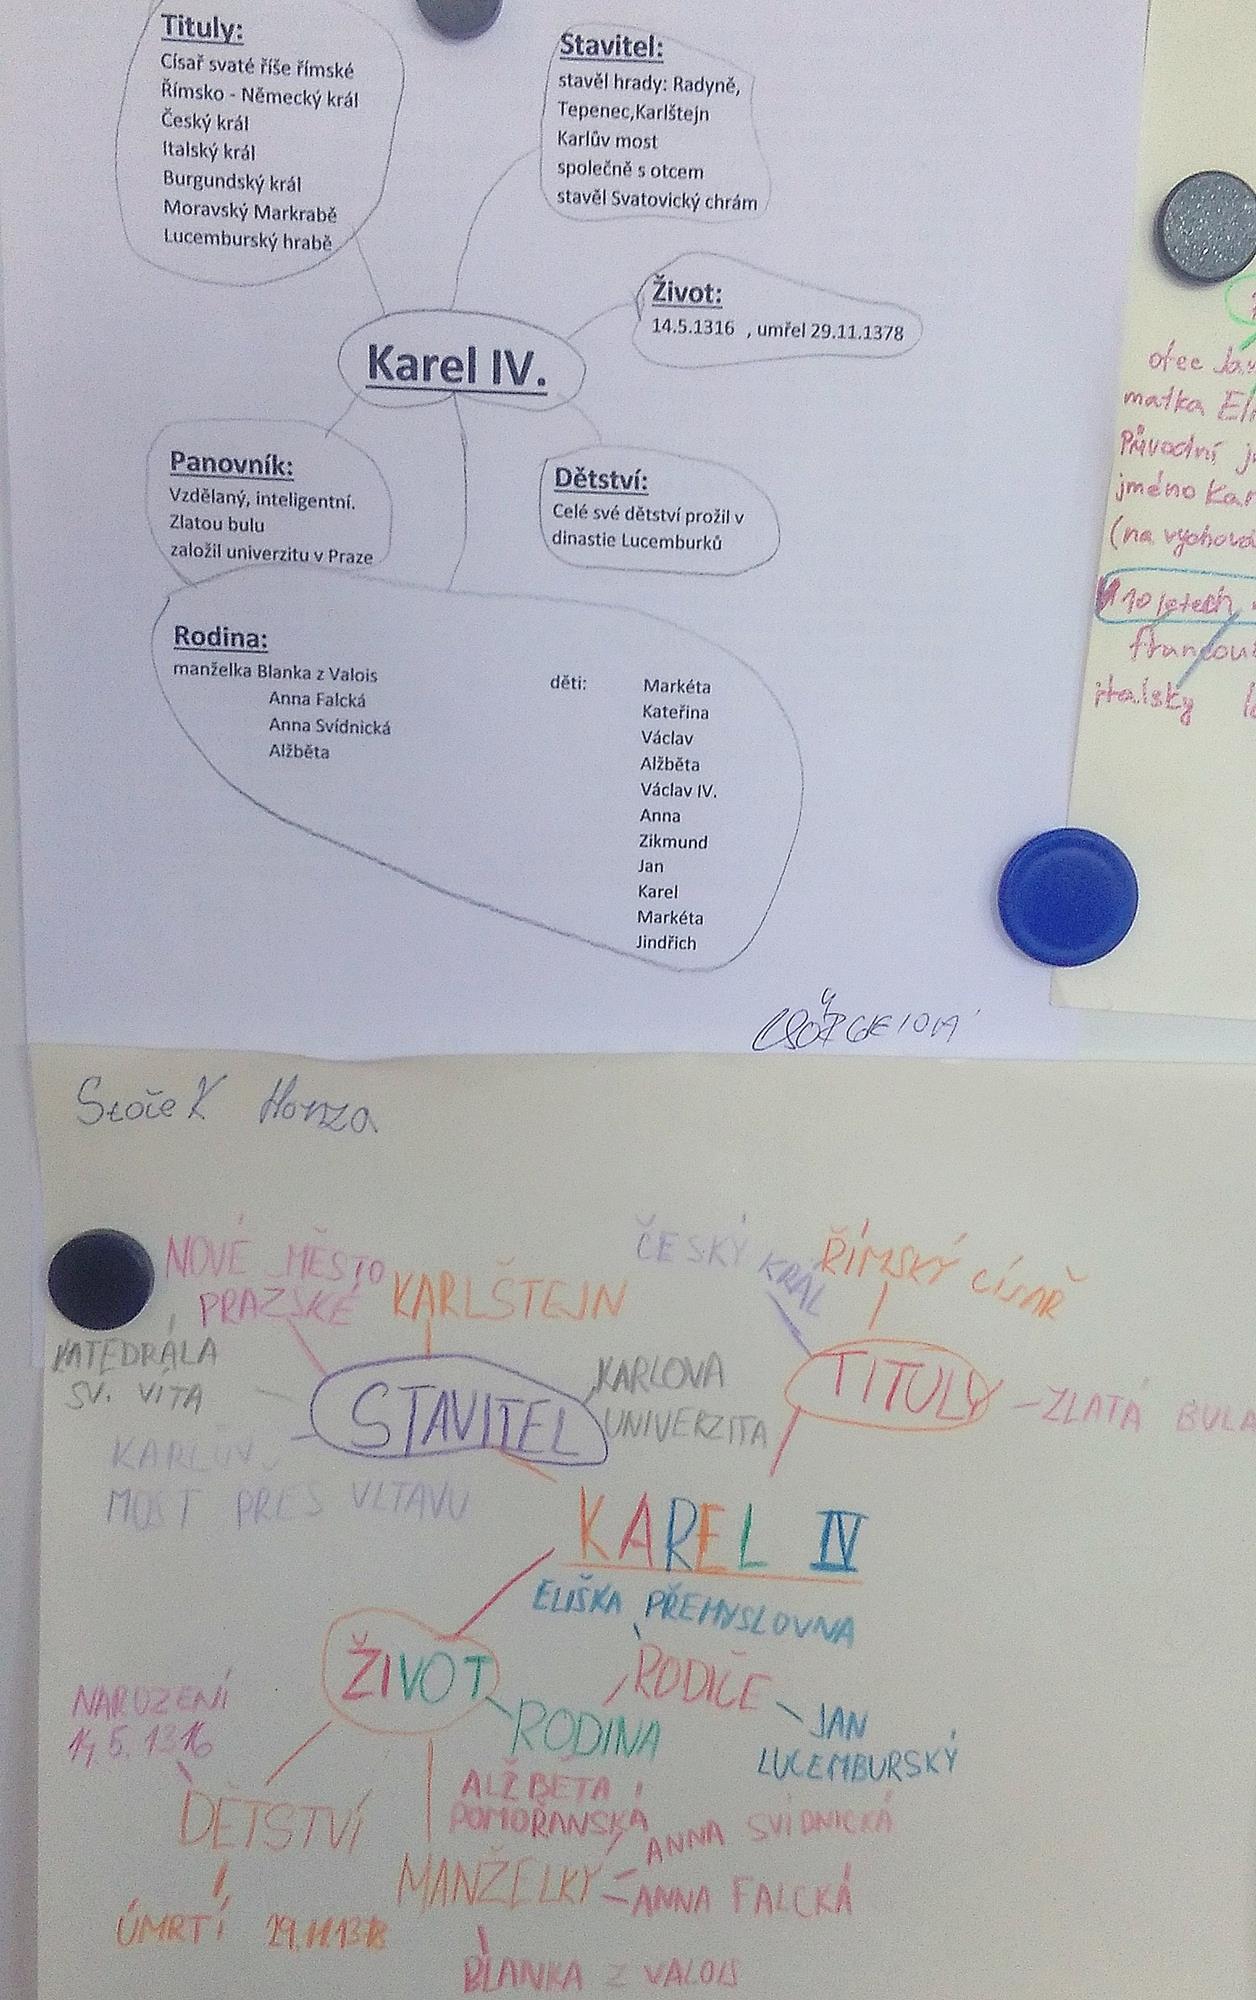 Tituly:
Císař svaté říše římské
Římsko - Německý král
Český král
Italský král
Burgundský král
Moravský Markrabě
Lucemburský hrabě
Stavitel:
stavěl hrady: Radyně,
Tepenec,Karlštejn
Karlův most
společně s otcem
stavěl Svatovický chrám
Život:
14.5.1316 , umřel 29.11.1378
Karel IV.
Panovník:
Vzdělaný, inteligentní.
Zlatou bulu
založil univerzitu v Praze
Dětství:
Celé své dětství prožil v
dinastie Lucemburků
Rodina:
manželka Blanka z Valois
Anna Falcká
Anna Svídnická
Alžběta
děti:
Markéta
Kateřina
Václav
Alžběta
Václav IV.
Anna
Zikmund
Jan
Karel
Markéta
Jindřich
otec
matka
Původní
jméno
(na
10 letech
italsky
Honza
NOVÉ MĚSTO
PRAZSKÉ
KARLŠTEJN
KATEDRÁLA
SV. VÍTA
STAVITEL
KARLOVA
UNIVERZITA
KARLŮV
MOST PŘES VLTAVU
ČESKÝ KRÁL
ŘÍMSKÝ CÍSAŘ
TITULY
ZLATÁ BULA
KAREL IV
ELIŠKA PŘEMYSLOVNA
ŽIVOT
RODIČE
RODINA
JAN
LUCEMBURSKÝ
NAROZENÍ
14.5.1316
DĚTSTVÍ
ÚMRTÍ 29.11.1378
ALŽBĚTA
POMOŘANSKÁ
ANNA SVÍDNICKÁ
MANŽELKY
ANNA FALCKÁ
BLANKA Z VALOIS